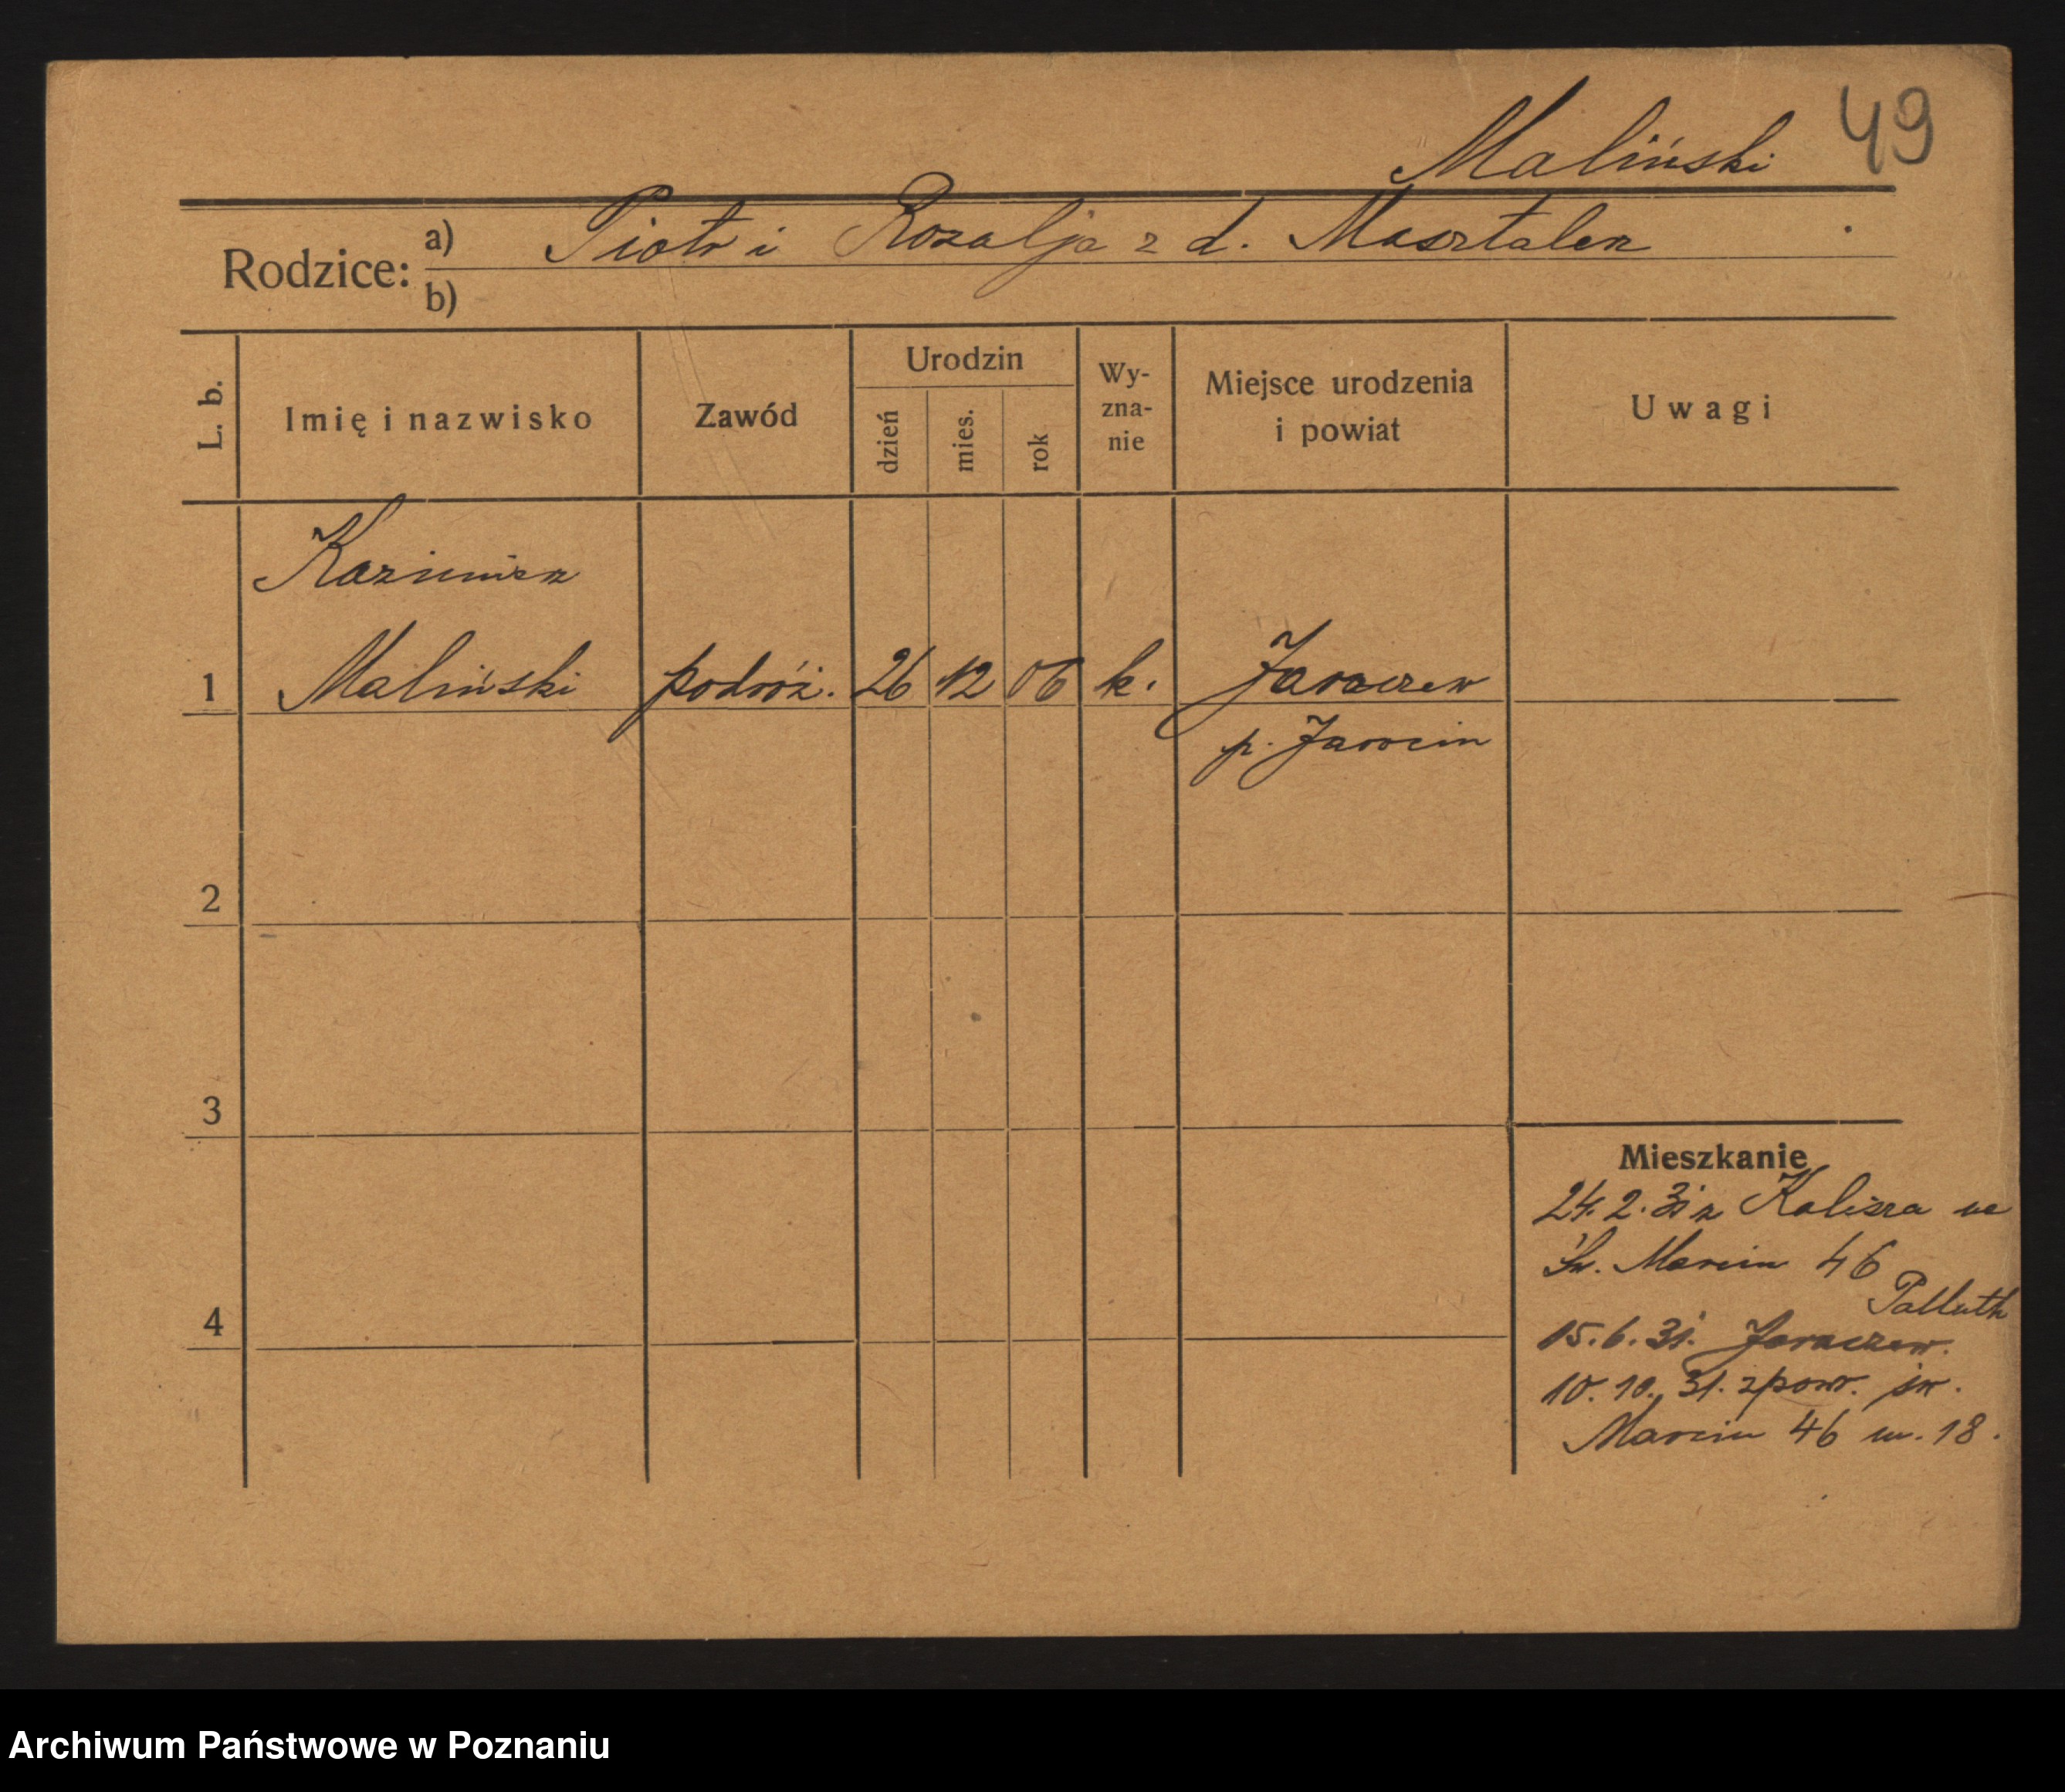 49
Maliński
Rodzice: a) Piotr i Rozalja z d. Masztalerz
b)
L. b.
Imię i nazwisko
Zawód
Urodzin
dzień
mies.
rok
Wy-
zna-
nie
Miejsce urodzenia
i powiat
Uwagi
Kazimierz
1 Maliński podróż. 26 12 06 k. Jaraczew
p. Jarocin
2
3
4
Mieszkanie
24. 2. 31 z Kalisza
Św. Marcin 46
Palluth
15. 6. 31. Jaraczew.
10. 10. 31. zpow. św.
Marcin 46 m. 18.
Archiwum Państwowe w Poznaniu